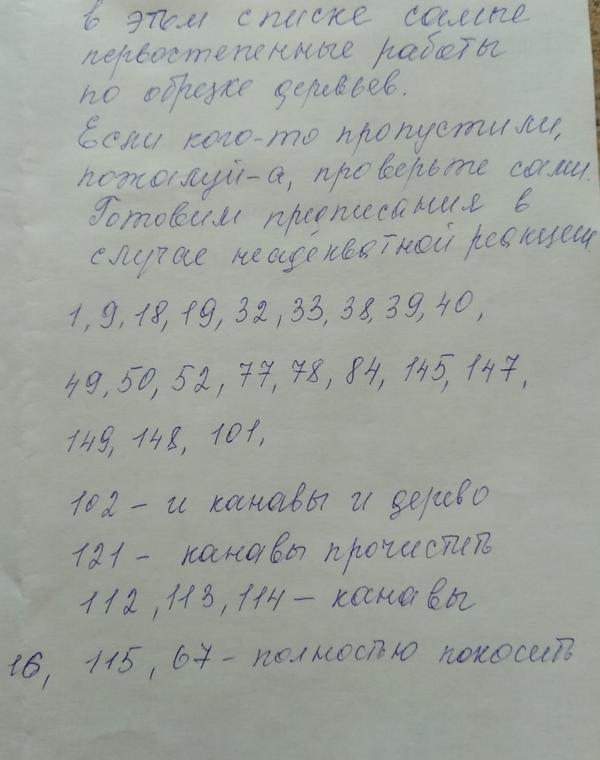 в этом списке самые
первостепенные работы
по обрезке деревьев.
Если кого-то пропустили,
пожалуй-а, проверьте сами.
Готовим предписания в
случае неадекватной реакции.
1, 9, 18, 19, 32, 33, 38, 39, 40,
49, 50, 52, 77, 78, 84, 145, 147,
149, 148, 101,
102 - и канавы и дерево
121 - канавы прочистить
112, 113, 114 - канавы
16, 115, 67 - полностью покосить